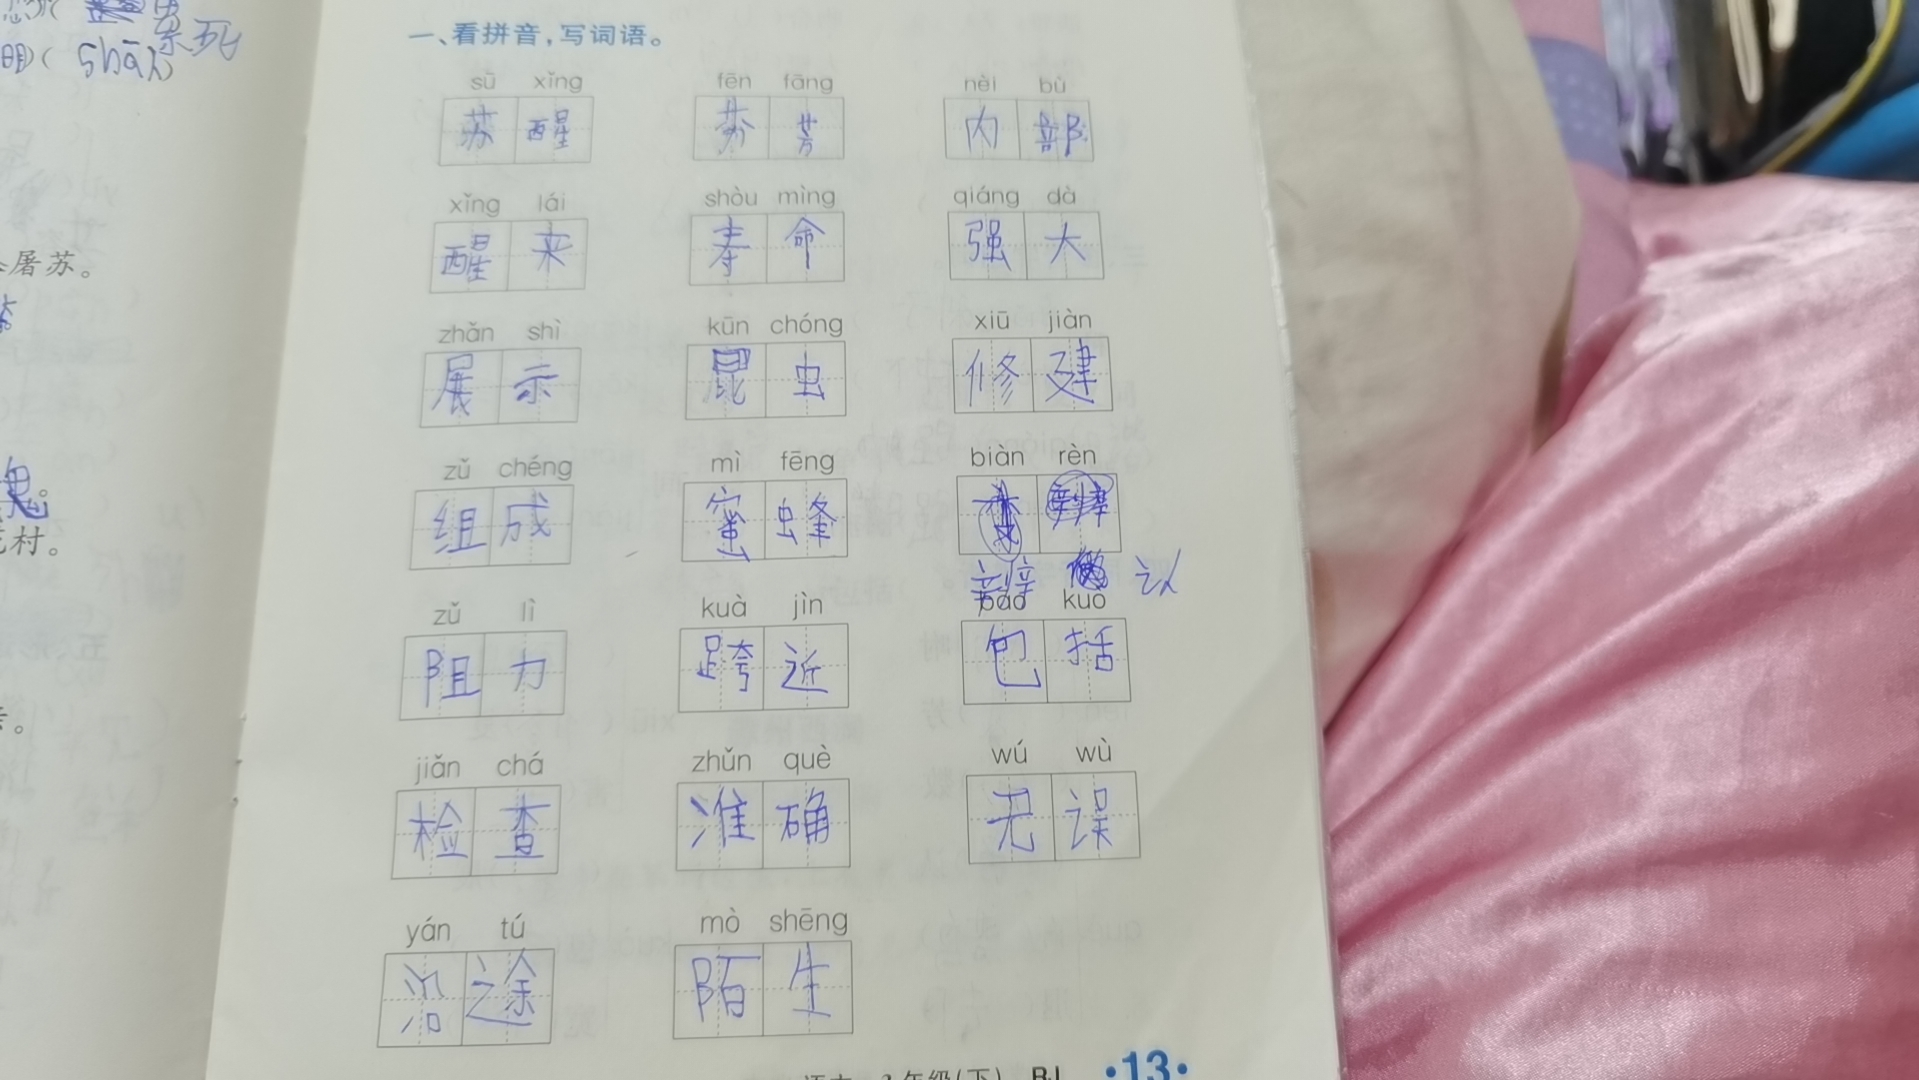 shān
亲死
屠苏。
村。
一、看拼音,写词语。
sū xǐng fēn fāng nèi bù
苏醒 芬芳 内部
xǐng lái shòu mìng qiáng dà
醒来 寿命 强大
zhǎn shì kūn chóng xiū jiàn
展示 昆虫 修建
zǔ chéng mì fēng biàn rèn
组成 蜜蜂
辨 认
zǔ lì kuà jìn bāo kuò
阻力 跨近 包括
jiǎn chá zhǔn què wú wù
检查 准确 无误
yán tú mò shēng
沿途 陌生
·13·